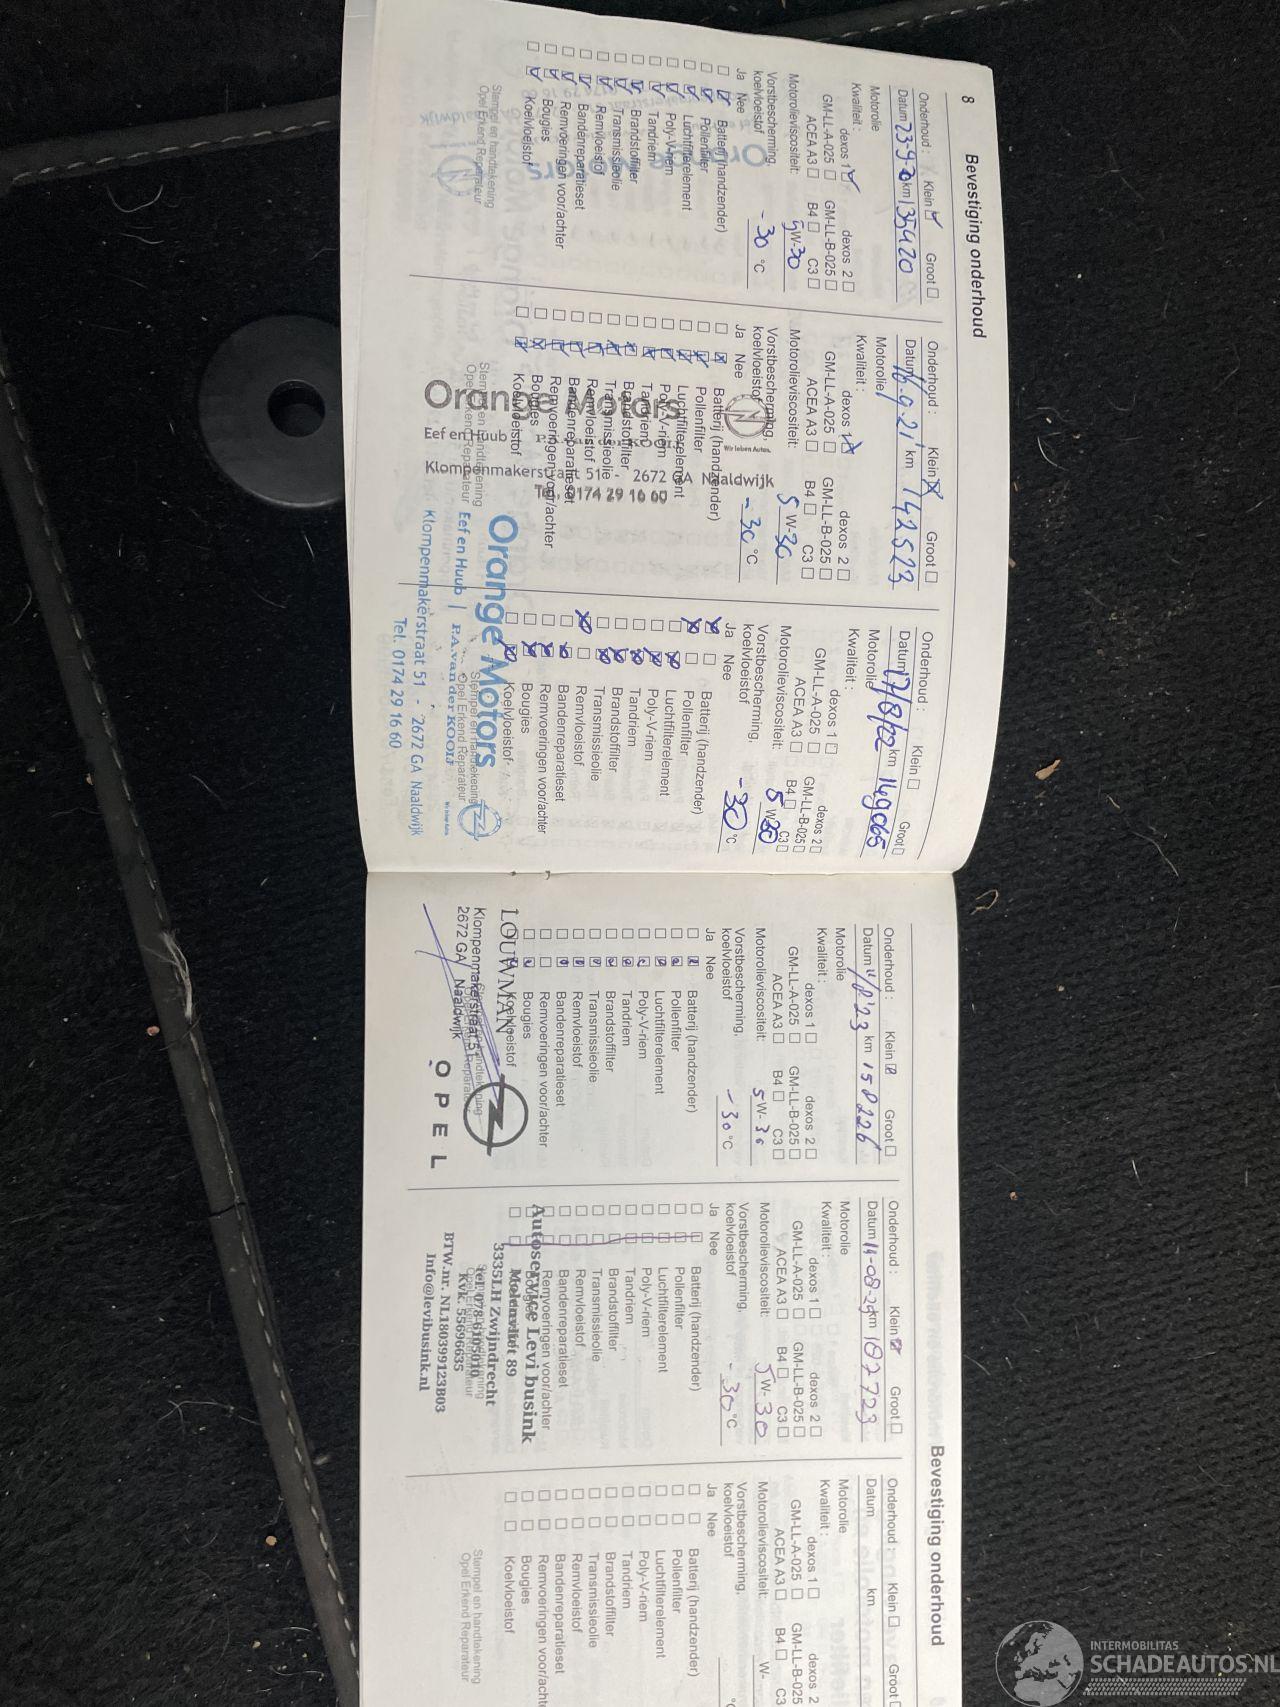 8 Bevestiging onderhoud
Onderhoud : Klein Groot
Datum 23-9-20 km 135420
Motorolie
Kwaliteit : dexos 1 dexos 2
GM-LL-A-025 GM-LL-B-025
ACEA A3 B4 C3
Motorolieviscositeit: 5W-30
Vorstbescherming,
koelvloeistof -30 °C
Ja Nee
Batterij (handzender)
Pollenfilter
Luchtfilterelement
Poly-V-riem
Tandriem
Brandstoffilter
Transmissieolie
Remvloeistof
Bandenreparatieset
Remvoeringen voor/achter
Bougies
Koelvloeistof
Stempel en handtekening
Opel Erkend Reparateur
Onderhoud : Klein Groot
Datum 16-9-21 km 142523
Motorolie
Kwaliteit : dexos 1 dexos 2
GM-LL-A-025 GM-LL-B-025
ACEA A3 B4 C3
Motorolieviscositeit: 5 W-30
Vorstbescherming,
koelvloeistof -30 °C
Ja Nee
Batterij (handzender)
Pollenfilter
Luchtfilterelement
Poly-V-riem
Tandriem
Brandstoffilter
Transmissieolie
Remvloeistof
Bandenreparatieset
Remvoeringen voor/achter
Bougies
Koelvloeistof
Stempel en handtekening
Opel Erkend Reparateur
Orange Motors
Eef en Huub
Klompenmakerstraat 51 - 2672 GA Naaldwijk
Tel. 0174 29 16 60
Wir leben Autos.
Onderhoud : Klein Groot
Datum 17/8/22 km 149065
Motorolie
Kwaliteit : dexos 1 dexos 2
GM-LL-A-025 GM-LL-B-025
ACEA A3 B4 C3
Motorolieviscositeit: 5 W30
Vorstbescherming,
koelvloeistof -30 °C
Ja Nee
Batterij (handzender)
Pollenfilter
Luchtfilterelement
Poly-V-riem
Tandriem
Brandstoffilter
Transmissieolie
Remvloeistof
Bandenreparatieset
Remvoeringen voor/achter
Bougies
Koelvloeistof
Stempel en handtekening
Opel Erkend Reparateur
Orange Motors
Eef en Huub | P.A. van der KOOIJ
Klompenmakerstraat 51 - 2672 GA Naaldwijk
Tel. 0174 29 16 60
Bevestiging onderhoud
Onderhoud : Klein Groot
Datum 11/8'23 km 158226
Motorolie
Kwaliteit : dexos 1 dexos 2
GM-LL-A-025 GM-LL-B-025
ACEA A3 B4 C3
Motorolieviscositeit: 5 W-30
Vorstbescherming,
koelvloeistof -30 °C
Ja Nee
Batterij (handzender)
Pollenfilter
Luchtfilterelement
Poly-V-riem
Tandriem
Brandstoffilter
Transmissieolie
Remvloeistof
Bandenreparatieset
Remvoeringen voor/achter
Bougies
Koelvloeistof
LOUWMAN
Klompenmakerstraat 51
2672 GA Naaldwijk
OPEL
Onderhoud : Klein Groot
Datum 14-08-25 km 187723
Motorolie
Kwaliteit : dexos 1 dexos 2
GM-LL-A-025 GM-LL-B-025
ACEA A3 B4 C3
Motorolieviscositeit: 5W-30
Vorstbescherming,
koelvloeistof -30 °C
Ja Nee
Batterij (handzender)
Pollenfilter
Luchtfilterelement
Poly-V-riem
Tandriem
Brandstoffilter
Transmissieolie
Remvloeistof
Bandenreparatieset
Remvoeringen voor/achter
Bougies
Koelvloeistof
Autoservice Levi busink
Molenvliet 89
3335LH Zwijndrecht
Tel. 078-6105010
Kvk. 55696635
BTW.nr. NL180399123B03
Info@levibusink.nl
Onderhoud : Klein Groot
Datum km
Motorolie
Kwaliteit : dexos 1 dexos 2
GM-LL-A-025 GM-LL-B-025
ACEA A3 B4 C3
Motorolieviscositeit: W-
Vorstbescherming,
koelvloeistof °C
Ja Nee
Batterij (handzender)
Pollenfilter
Luchtfilterelement
Poly-V-riem
Tandriem
Brandstoffilter
Transmissieolie
Remvloeistof
Bandenreparatieset
Remvoeringen voor/achter
Bougies
Koelvloeistof
Stempel en handtekening
Opel Erkend Reparateur
INTERMOBILITAS
SCHADEAUTOS.NL